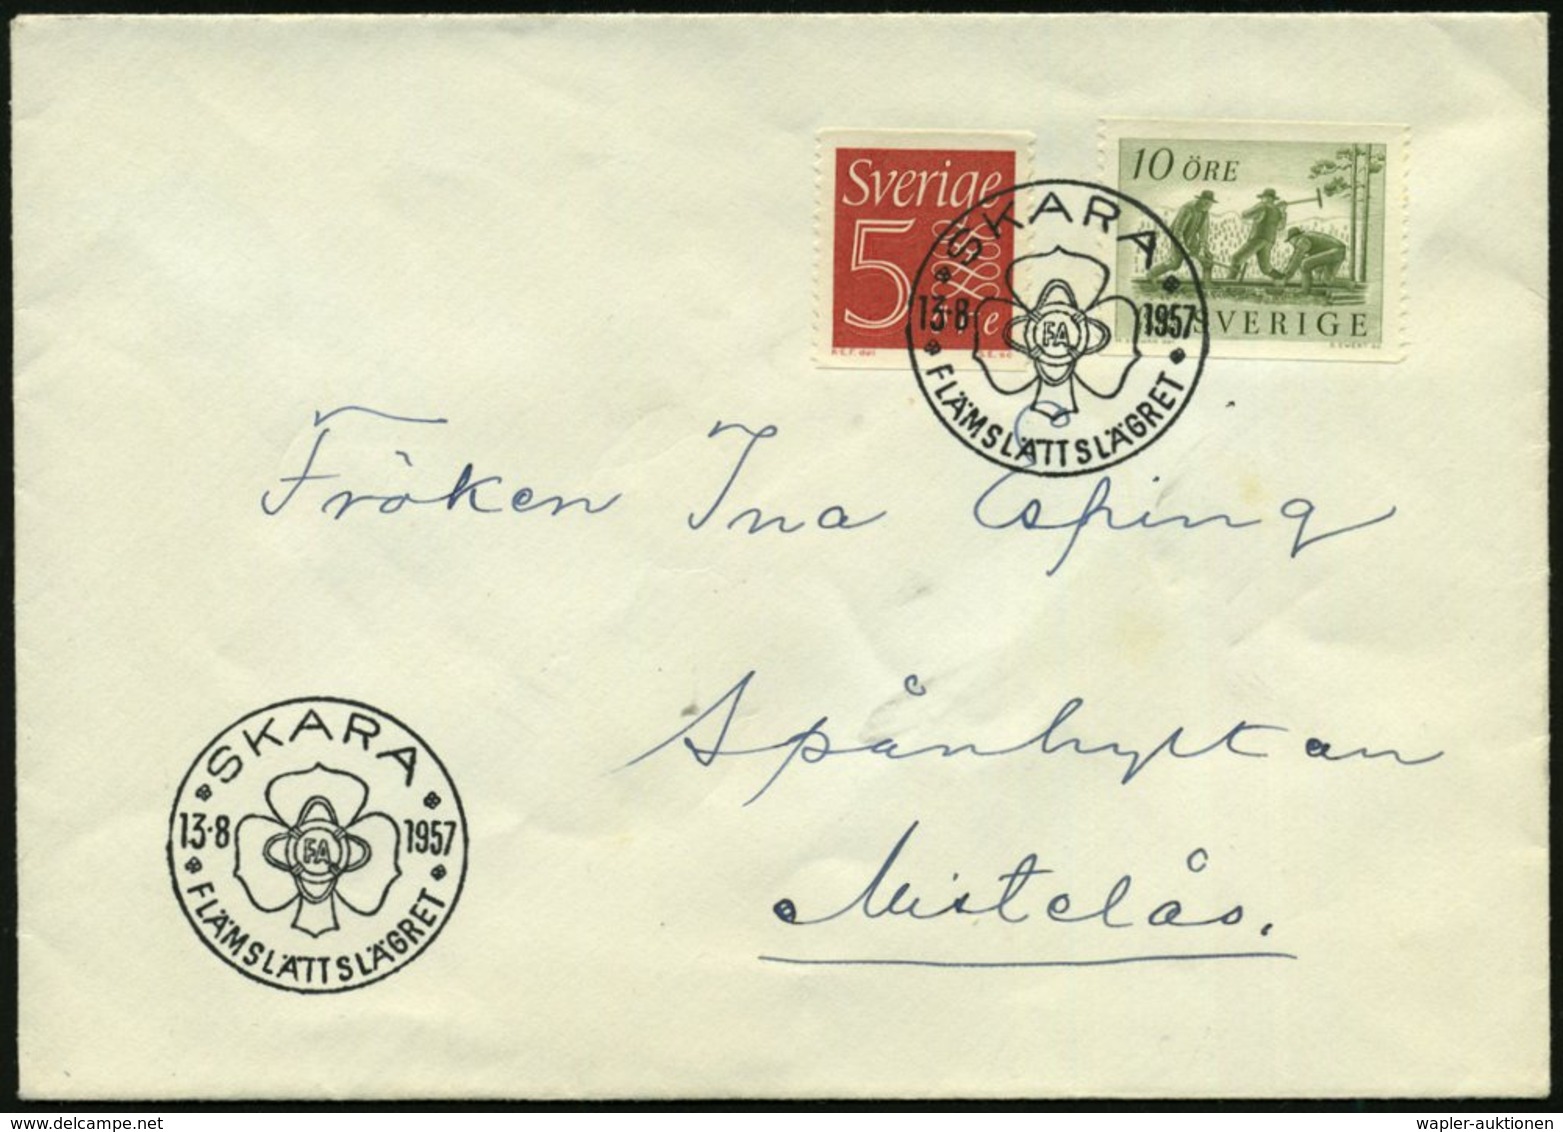 Sverige
5
öre
10 ÖRE
SVERIGE
SKARA
13·8 1957
FA
FLÄMSLÄTTSLÄGRET
Fröken Ina Esping
Spånhyttan
Mistelås.
SKARA
13·8 1957
FA
FLÄMSLÄTTSLÄGRET
wapler-auktionen